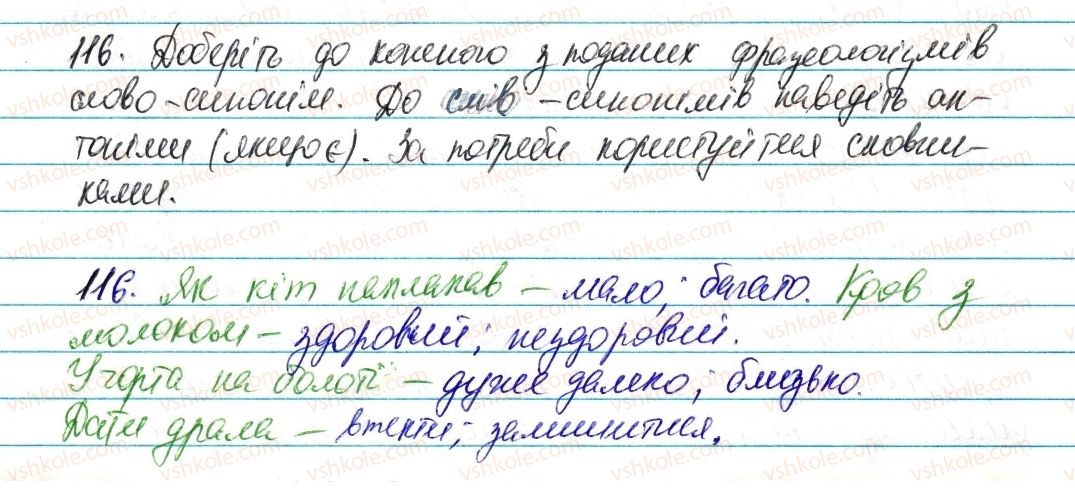 116. Доберіть до кожного з поданих фразеологізмів
слово-синонім. До слів-синонімів наведіть ан-
тоніми (якщо є). За потреби користуйтися словни-
ками.
116. Як кіт наплакав – мало; багато. Кров з
молоком – здоровий; нездоровий.
У чорта на болоті – дуже далеко; близько.
Дати драла – втекти; залишитися.